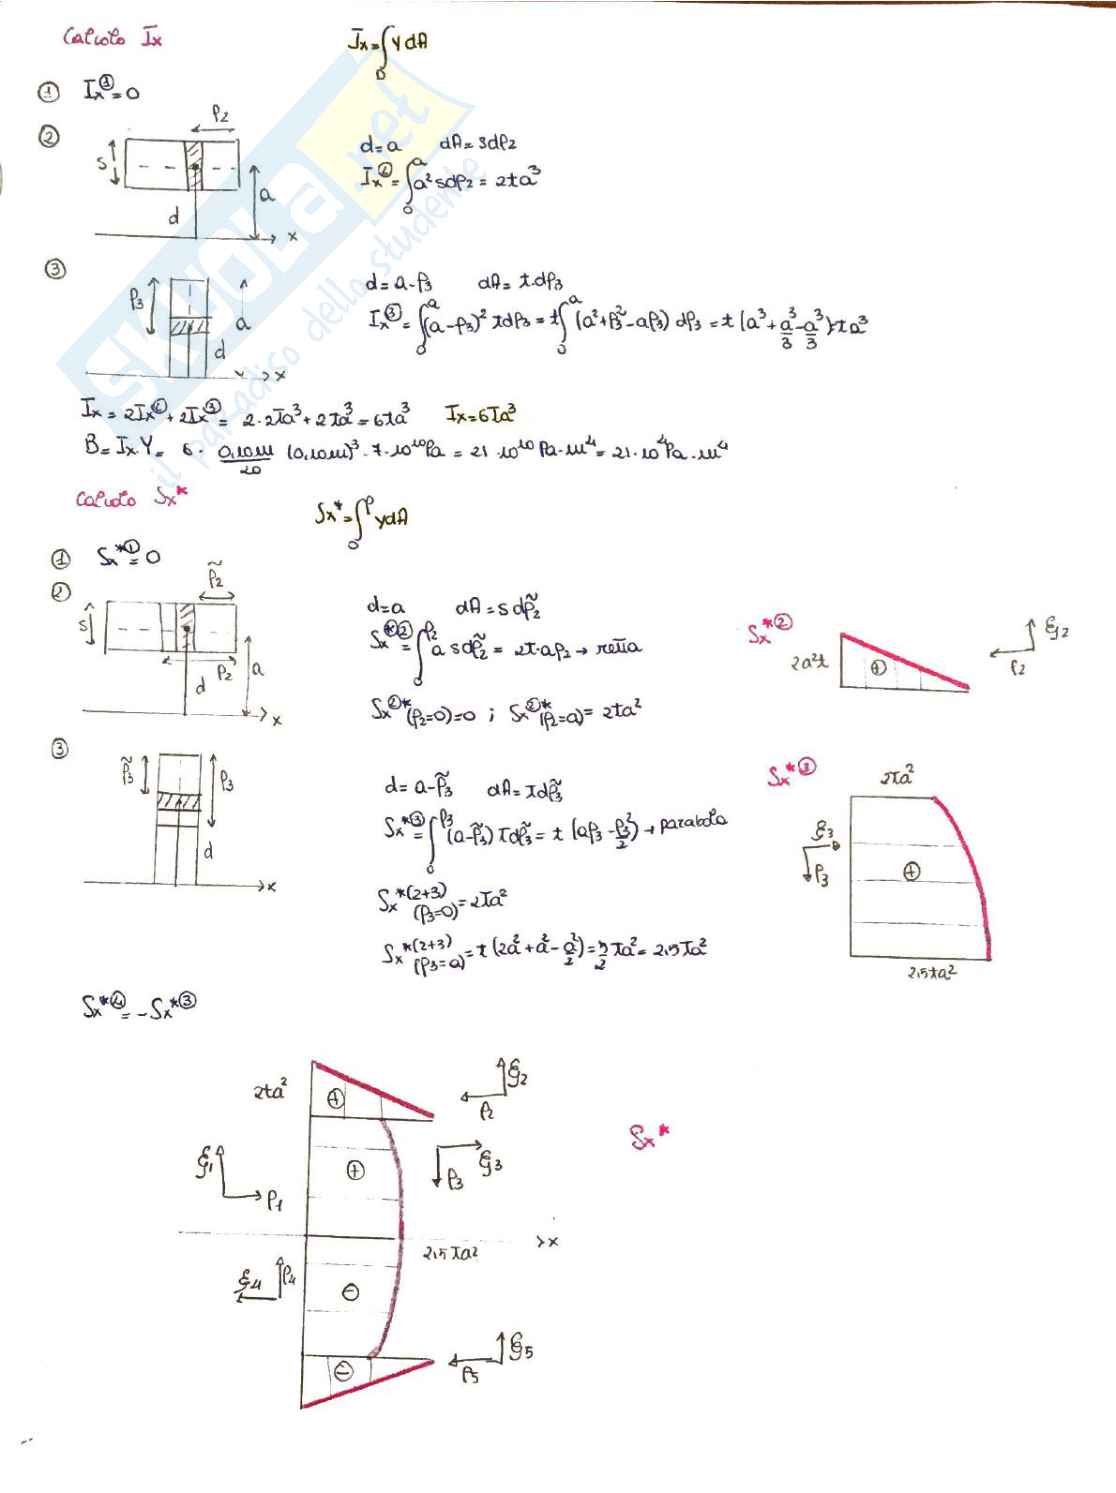 Calcolo Ix
Ix = ∫_D y dA
① Ix^① = 0
②
ρ2
s
d
a
x
d = a   dA = s dρ2
Ix^② = ∫_0^a a² s dρ2 = 2ta³
③
ρ3
a
d
x
d = a - ρ3   dA = t · dρ3
Ix^③ = ∫_0^a (a - ρ3)² t dρ3 = t ∫_0^a (a² + ρ3² - aρ3) dρ3 = t (a³ + a³/3 - a³/3) = ta³
Ix = 2Ix^② + 2Ix^③ = 2·2ta³ + 2ta³ = 6ta³   Ix = 6ta³
B = Ix·Y = 6 · 0,10m/20 (0,10m)³ · 7·10^10 Pa = 21·10^10 Pa·m⁴ = 21·10⁴ Pa·m⁴
Calcolo Sx*
Sx* = ∫_0^ρ y dA
① Sx*^① = 0
②
ρ̃2
s
ρ2
d
a
x
d = a   dA = s dρ̃2
Sx*^② = ∫_0^ρ2 a s dρ̃2 = 2t·aρ2 → retta
Sx^②*(ρ2=0) = 0 ; Sx^②*(ρ2=a) = 2ta²
Sx*^②
2a²t
⊕
ξ2
ρ2
③
ρ̃3
ρ3
d
x
d = a - ρ̃3   dA = t dρ̃3
Sx*^③ = ∫_0^ρ3 (a - ρ̃3) t dρ̃3 = t (aρ3 - ρ3²/2) → parabola
Sx*(2+3) (ρ3=0) = 2ta²
Sx*(2+3) (ρ3=a) = t (2a² + a² - a²/2) = 5/2 ta² = 2,5ta²
Sx*^③
2ta²
ξ3
ρ3
⊕
2,5ta²
Sx*^④ = -Sx*^③
2ta²
⊕
ξ2
ρ2
ξ1
ρ1
⊕
ξ3
ρ3
Sx*
2,5ta²
x
ξ4
ρ4
⊖
⊖
ξ5
ρ5
SKUOLA.net
il paradiso dello studente